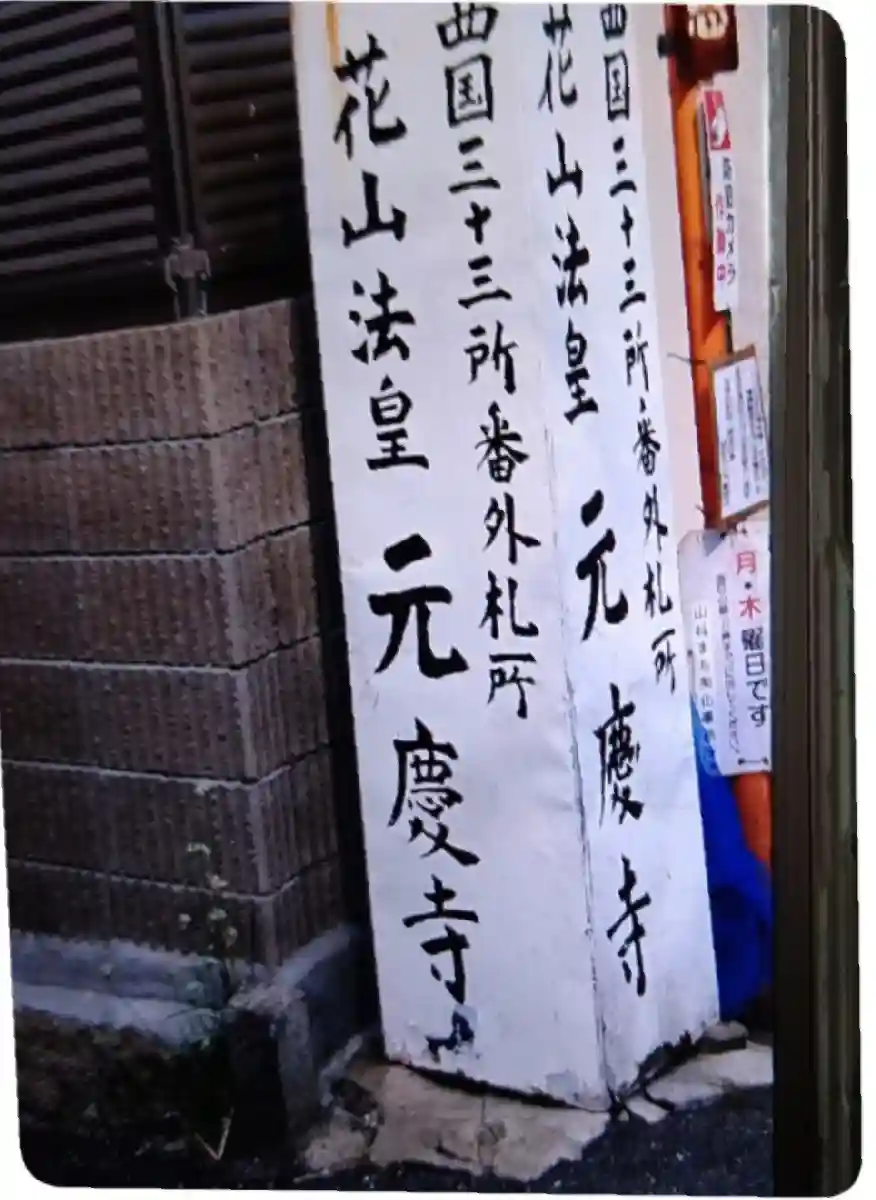 西国三十三所番外札所
花山法皇 元慶寺
西国三十三所番外札所
花山法皇 元慶寺
防犯カメラ
作動中
月・木
曜日です